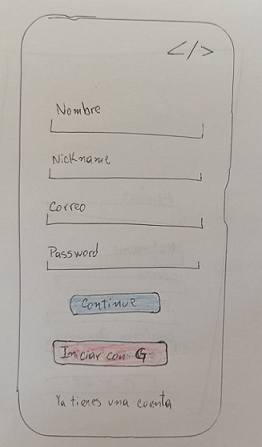 </>
Nombre
Nickname
Correo
Password
Continue
Iniciar con G
Ya tienes una cuenta